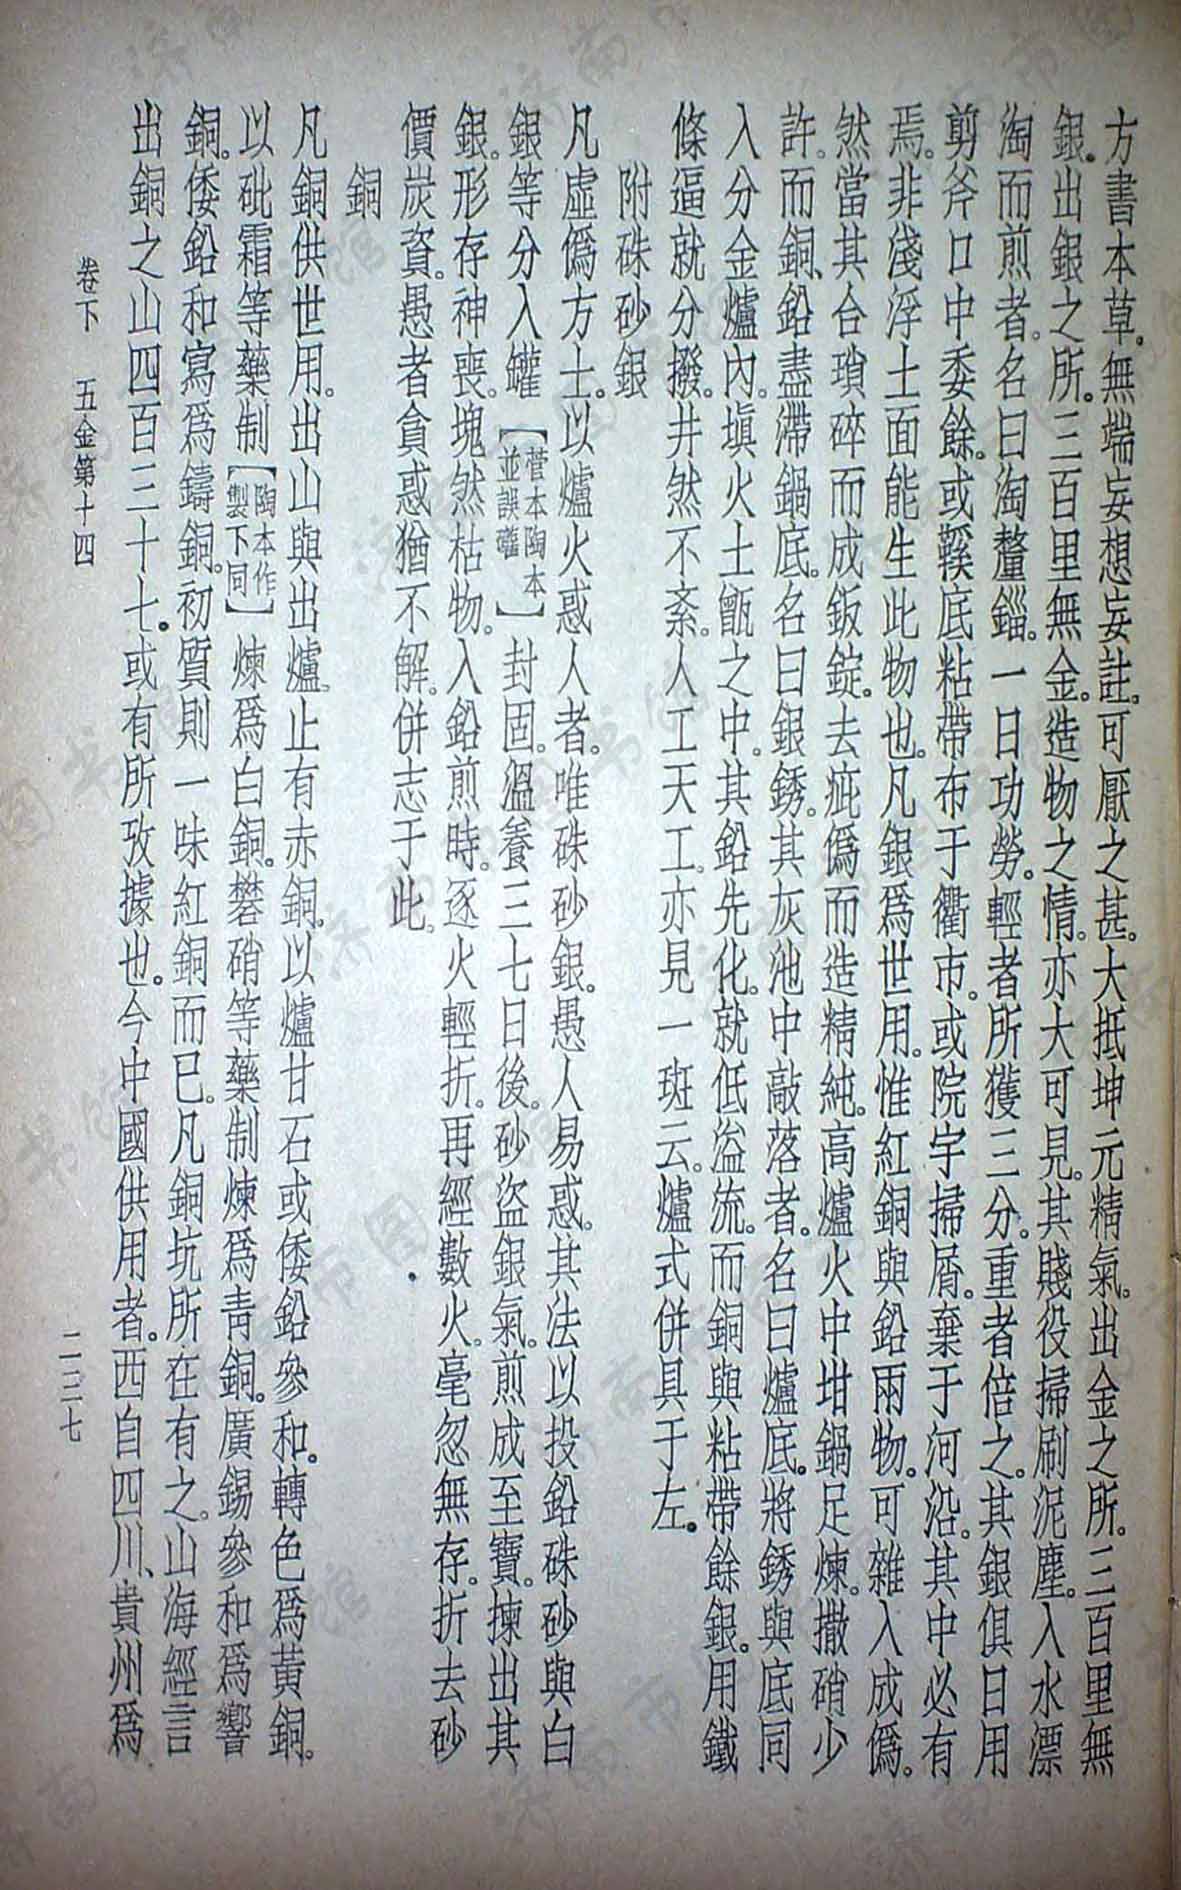 方書本草。無端妄想妄註。可厭之甚。大抵坤元精氣。出金之所。三百里無
銀。出銀之所。三百里無金。造物之情。亦大可見。其賤役掃刷泥塵。入水漂
淘而煎者。名曰淘釐錙。一日功勞。輕者所獲三分。重者倍之。其銀俱日用
剪斧口中委餘。或鞵底粘帶布于衢市。或院宇掃屑。棄于河沿。其中必有
焉。非淺浮土面能生此物也。凡銀爲世用。惟紅銅與鉛兩物。可雜入成僞。
然當其合瑣碎而成鈑錠。去疵僞而造精純。高爐火中坩鍋足煉。撒硝少
許。而銅、鉛盡滯鍋底。名曰銀銹。其灰池中敲落者。名曰爐底。將銹與底同
入分金爐內。塡火土甑之中。其鉛先化。就低溢流。而銅與粘帶餘銀。用鐵
條逼就分撥。井然不紊。人工天工。亦見一斑云。爐式併具于左。
附硃砂銀
凡虛僞方士。以爐火惑人者。唯硃砂銀。愚人易惑。其法以投鉛硃砂與白
銀等分入罐【菅本陶本並誤礶】封固。溫養三七日後。砂盜銀氣。煎成至寶。揀出其
銀。形存神喪。塊然枯物。入鉛煎時。逐火輕折。再經數火。毫忽無存。折去砂
價炭資。愚者貪惑猶不解。併志于此。
銅
凡銅供世用。出山與出爐。止有赤銅。以爐甘石或倭鉛參和。轉色爲黃銅。
以砒霜等藥制【陶本作製下同】煉爲白銅。礬硝等藥制煉爲靑銅。廣錫參和爲響
銅。倭鉛和寫爲鑄銅。初質則一味紅銅而已。凡銅坑所在有之。山海經言
出銅之山四百三十七。或有所攷據也。今中國供用者。西自四川、貴州爲
卷下　五金第十四　二二七